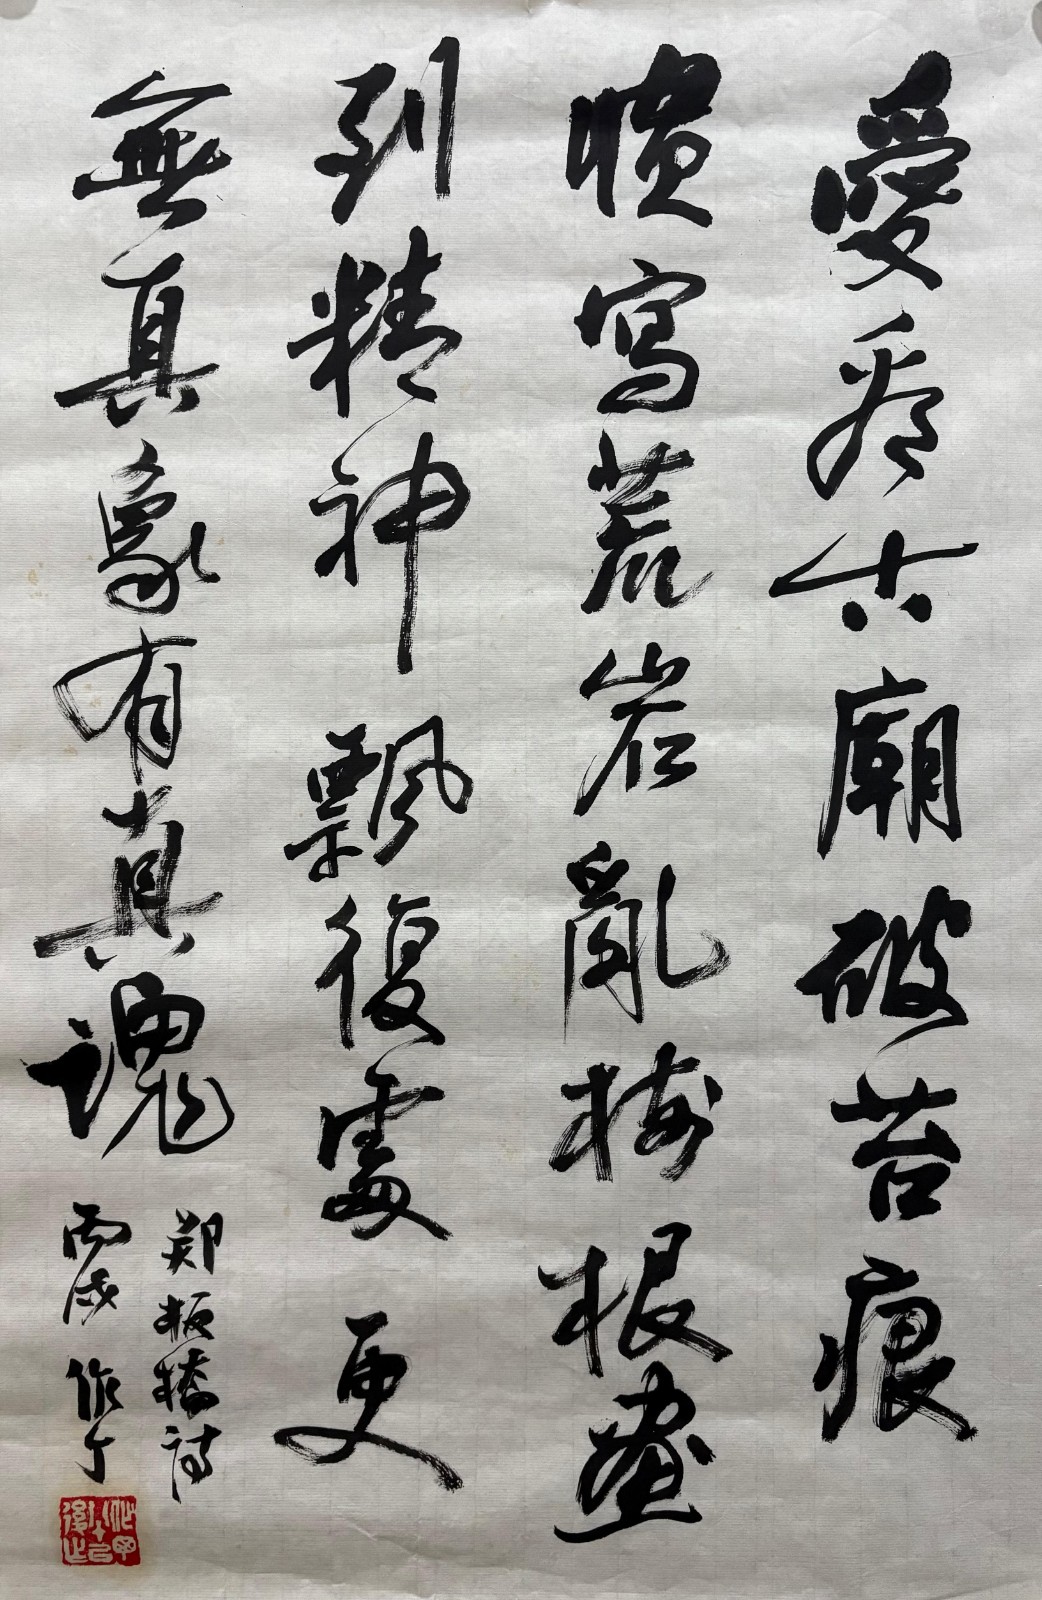 愛看古廟破苔痕
慣寫荒岩亂樹根畫
到精神飄復處更
無真象有真魂
郑板橋詩
丙戌 作